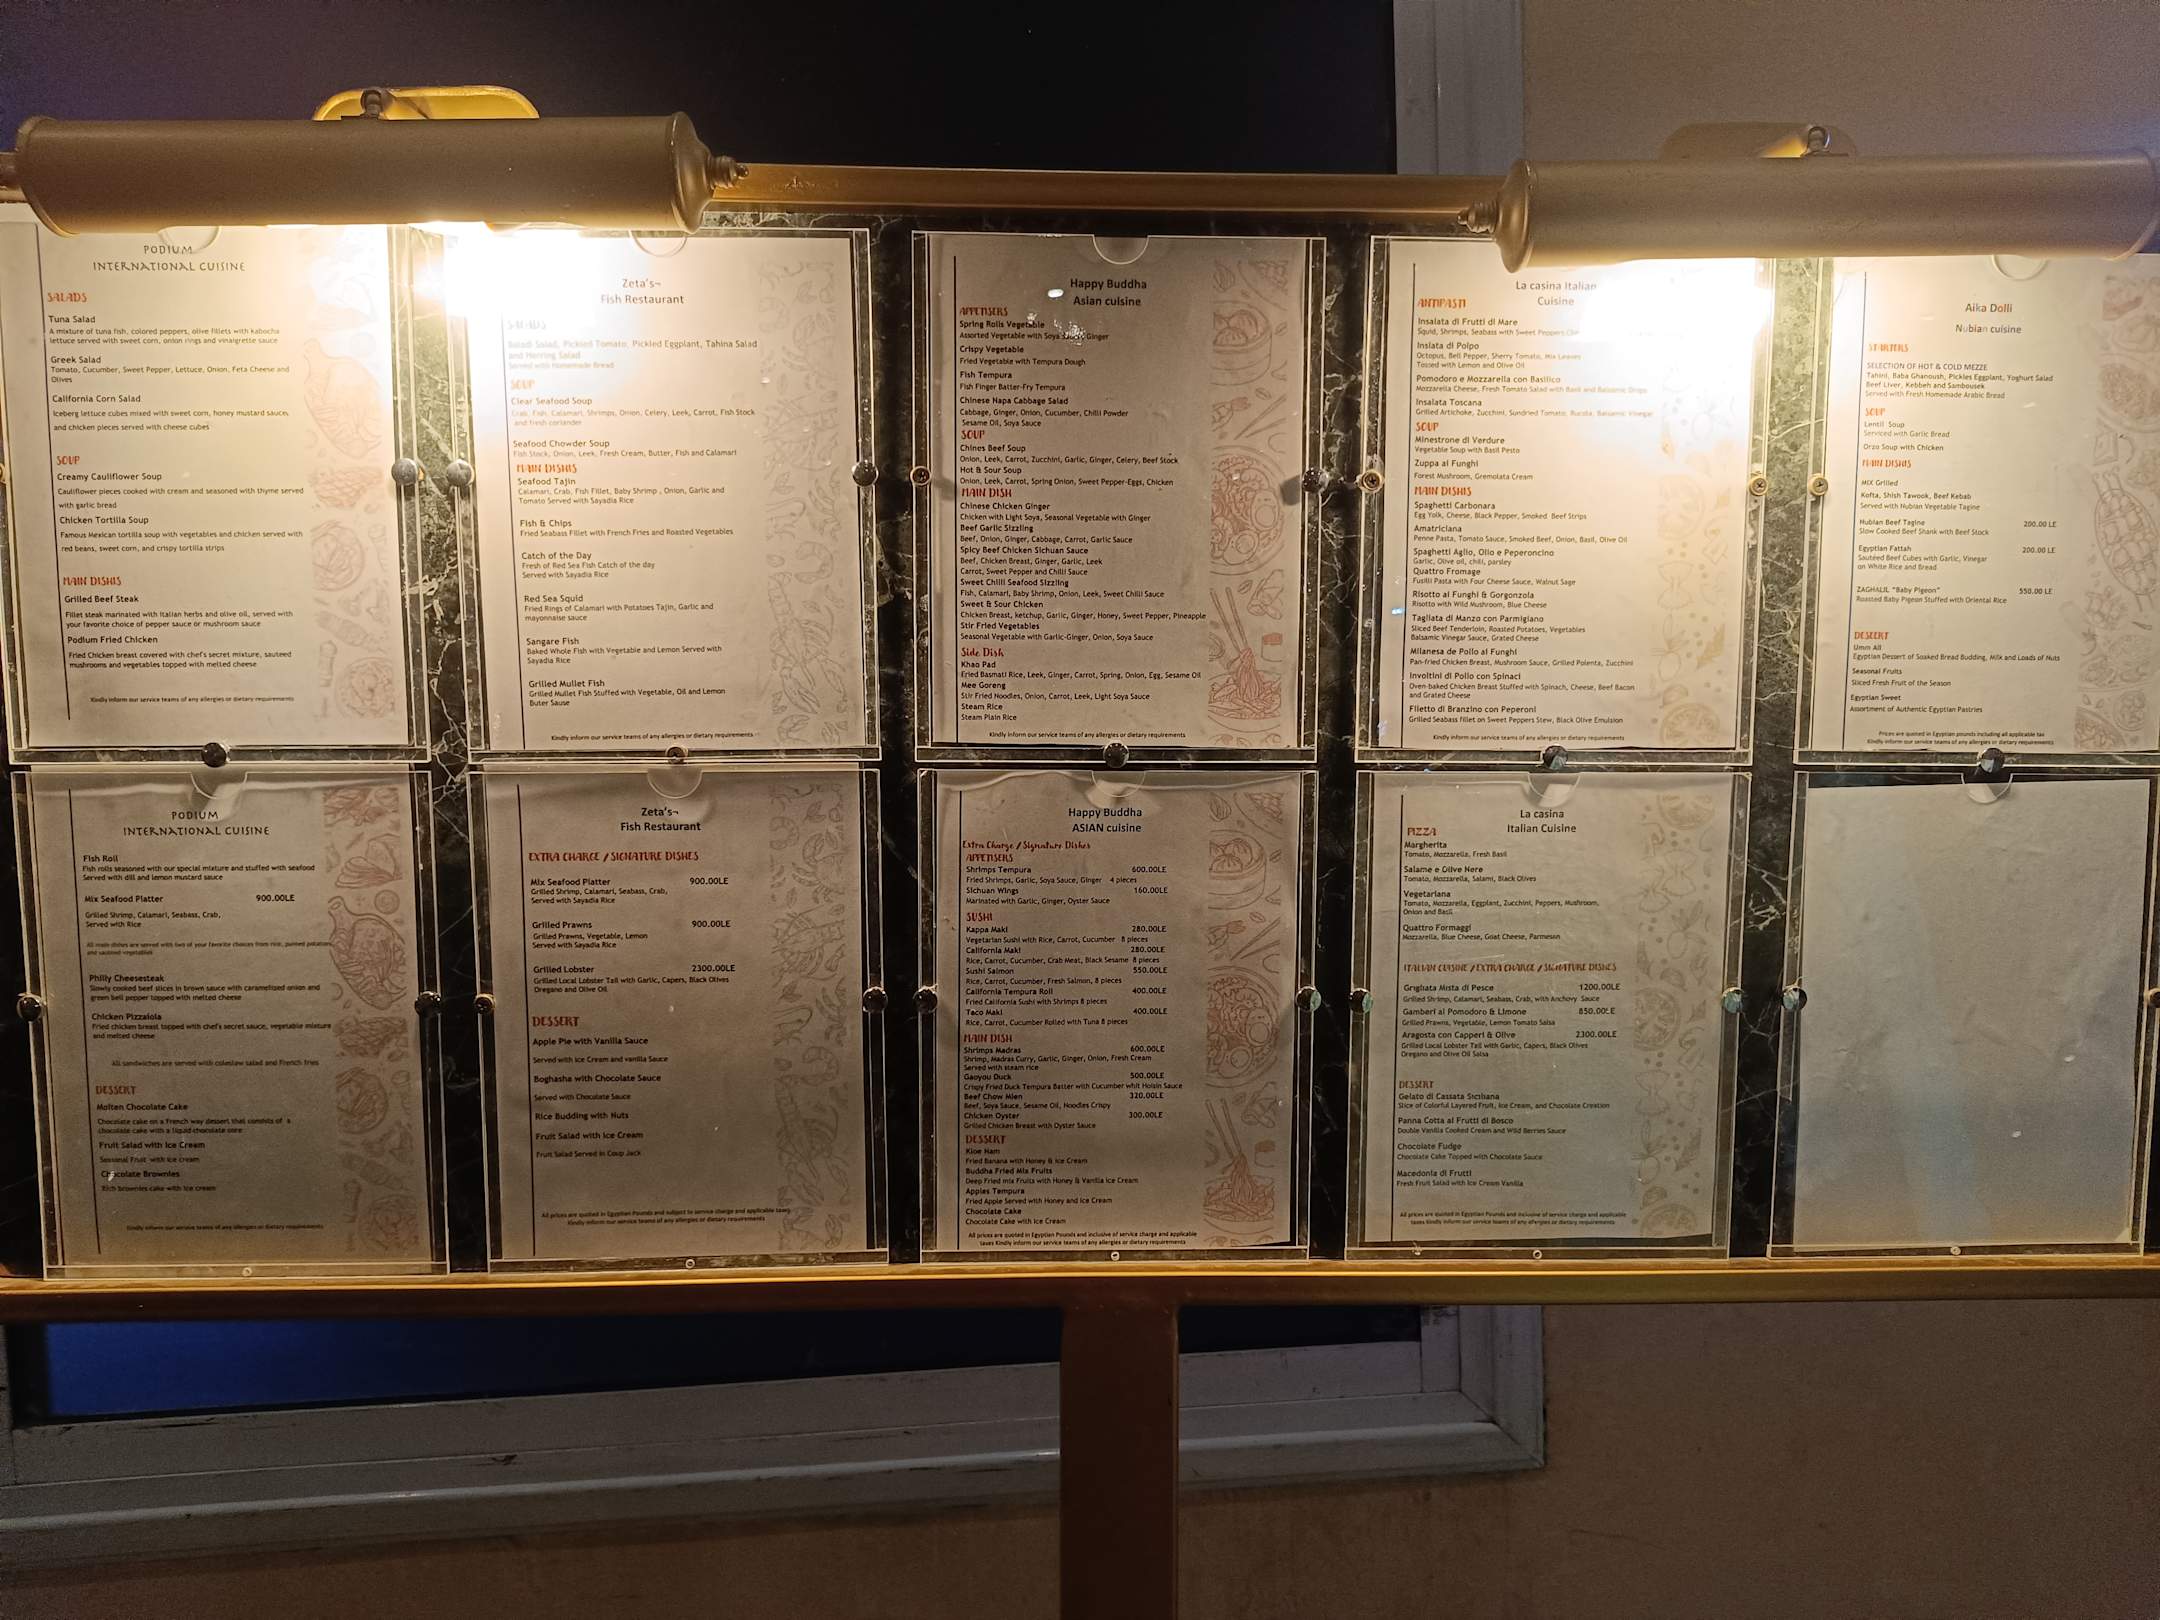 PODIUM
INTERNATIONAL CUISINE
SALADS
Tuna Salad
A mixture of tuna fish, colored peppers, olive fillets with kabocha
lettuce served with sweet corn, onion rings and vinaigrette sauce
Greek Salad
Tomato, Cucumber, Sweet Pepper, Lettuce, Onion, Feta Cheese and
Olives
California Corn Salad
Iceberg lettuce cubes mixed with sweet corn, honey mustard sauce,
and chicken pieces served with cheese cubes
SOUP
Creamy Cauliflower Soup
Cauliflower pieces cooked with cream and seasoned with thyme served
with garlic bread
Chicken Tortilla Soup
Famous Mexican tortilla soup with vegetables and chicken served with
red beans, sweet corn, and crispy tortilla strips
MAIN DISHES
Grilled Beef Steak
Fillet steak marinated with Italian herbs and olive oil, served with
your favorite choice of pepper sauce or mushroom sauce
Podium Fried Chicken
Fried Chicken breast covered with chef's secret mixture, sauteed
mushrooms and vegetables topped with melted cheese
Kindly inform our service teams of any allergies or dietary requirements
Zeta's¬
Fish Restaurant
SALADS
Baladi Salad, Pickled Tomato, Pickled Eggplant, Tahina Salad
and Herring Salad
Served with Homemade Bread
SOUP
Clear Seafood Soup
Crab, Fish, Calamari, Shrimps, Onion, Celery, Leek, Carrot, Fish Stock
and fresh coriander
Seafood Chowder Soup
Fish Stock, Onion, Leek, Fresh Cream, Butter, Fish and Calamari
MAIN DISHES
Seafood Tajin
Calamari, Crab, Fish Fillet, Baby Shrimp , Onion, Garlic and
Tomato Served with Sayadia Rice
Fish & Chips
Fried Seabass Fillet with French Fries and Roasted Vegetables
Catch of the Day
Fresh of Red Sea Fish Catch of the day
Served with Sayadia Rice
Red Sea Squid
Fried Rings of Calamari with Potatoes Tajin, Garlic and
mayonnaise sauce
Sangare Fish
Baked Whole Fish with Vegetable and Lemon Served with
Sayadia Rice
Grilled Mullet Fish
Grilled Mullet Fish Stuffed with Vegetable, Oil and Lemon
Buter Sause
Kindly inform our service teams of any allergies or dietary requirements
Happy Buddha
Asian cuisine
APPETISERS
Spring Rolls Vegetable
Assorted Vegetable with Soya Sauce, Ginger
Crispy Vegetable
Fried Vegetable with Tempura Dough
Fish Tempura
Fish Finger Batter-Fry Tempura
Chinese Napa Cabbage Salad
Cabbage, Ginger, Onion, Cucumber, Chilli Powder
Sesame Oil, Soya Sauce
SOUP
Chines Beef Soup
Onion, Leek, Carrot, Zucchini, Garlic, Ginger, Celery, Beef Stock
Hot & Sour Soup
Onion, Leek, Carrot, Spring Onion, Sweet Pepper-Eggs, Chicken
MAIN DISH
Chinese Chicken Ginger
Chicken with Light Soya, Seasonal Vegetable with Ginger
Beef Garlic Sizzling
Beef, Onion, Ginger, Cabbage, Carrot, Garlic Sauce
Spicy Beef Chicken Sichuan Sauce
Beef, Chicken Breast, Ginger, Garlic, Leek
Carrot, Sweet Pepper and Chilli Sauce
Sweet Chilli Seafood Sizzling
Fish, Calamari, Baby Shrimp, Onion, Leek, Sweet Chilli Sauce
Sweet & Sour Chicken
Chicken Breast, ketchup, Garlic, Ginger, Honey, Sweet Pepper, Pineapple
Stir Fried Vegetables
Seasonal Vegetable with Garlic-Ginger, Onion, Soya Sauce
Side Dish
Khao Pad
Fried Basmati Rice, Leek, Ginger, Carrot, Spring, Onion, Egg, Sesame Oil
Mee Goreng
Stir Fried Noodles, Onion, Carrot, Leek, Light Soya Sauce
Steam Rice
Steam Plain Rice
Kindly inform our service teams of any allergies or dietary requirements
La casina Italian
Cuisine
ANTIPASTI
Insalata di Frutti di Mare
Squid, Shrimps, Seabass with Sweet Peppers
Inslata di Polpo
Octopus, Bell Pepper, Sherry Tomato, Mix Leaves
Tossed with Lemon and Olive Oil
Pomodoro e Mozzarella con Basilico
Mozzarella Cheese, Fresh Tomato Salad with Basil and Balsamic Drips
Insalata Toscana
Grilled Artichoke, Zucchini, Sundried Tomato, Rucola, Balsamic Vinegar
SOUP
Minestrone di Verdure
Vegetable Soup with Basil Pesto
Zuppa ai Funghi
Forest Mushroom, Gremolata Cream
MAIN DISHES
Spaghetti Carbonara
Egg Yolk, Cheese, Black Pepper, Smoked Beef Strips
Amatriciana
Penne Pasta, Tomato Sauce, Smoked Beef, Onion, Basil, Olive Oil
Spaghetti Aglio, Olio e Peperoncino
Garlic, Olive oil, chili, parsley
Quattro Fromage
Fusilli Pasta with Four Cheese Sauce, Walnut Sage
Risotto al Funghi & Gorgonzola
Risotto with Wild Mushroom, Blue Cheese
Tagliata di Manzo con Parmigiano
Sliced Beef Tenderloin, Roasted Potatoes, Vegetables
Balsamic Vinegar Sauce, Grated Cheese
Milanesa de Pollo al Funghi
Pan-fried Chicken Breast, Mushroom Sauce, Grilled Polenta, Zucchini
Involtini di Pollo con Spinaci
Oven-baked Chicken Breast Stuffed with Spinach, Cheese, Beef Bacon
and Grated Cheese
Filetto di Branzino con Peperoni
Grilled Seabass fillet on Sweet Peppers Stew, Black Olive Emulsion
Kindly inform our service teams of any allergies or dietary requirements
Aika Dolli
Nubian cuisine
STARTERS
SELECTION OF HOT & COLD MEZZE
Tahini, Baba Ghanoush, Pickles Eggplant, Yoghurt Salad
Beef Liver, Kebbeh and Sambousek
Served with Fresh Homemade Arabic Bread
SOUP
Lentil Soup
Serviced with Garlic Bread
Orzo Soup with Chicken
MAIN DISHES
MIX Grilled
Kofta, Shish Tawook, Beef Kebab
Served with Nubian Vegetable Tagine
Nubian Beef Tagine 200.00 LE
Slow Cooked Beef Shank with Beef Stock
Egyptian Fattah 200.00 LE
Sautéed Beef Cubes with Garlic, Vinegar
on White Rice and Bread
ZAGHALIL "Baby Pigeon" 550.00 LE
Roasted Baby Pigeon Stuffed with Oriental Rice
DESSERT
Umm Ali
Egyptian Dessert of Soaked Bread Budding, Milk and Loads of Nuts
Seasonal Fruits
Sliced Fresh Fruit of the Season
Egyptian Sweet
Assortment of Authentic Egyptian Pastries
Prices are quoted in Egyptian pounds including all applicable tax
Kindly inform our service teams of any allergies or dietary requirements
PODIUM
INTERNATIONAL CUISINE
Fish Roll
Fish rolls seasoned with our special mixture and stuffed with seafood
Served with dill and lemon mustard sauce
Mix Seafood Platter 900.00LE
Grilled Shrimp, Calamari, Seabass, Crab,
Served with Rice
All main dishes are served with two of your favorite choices from rice, painted potatoes
and sauteed vegetables
Philly Cheesesteak
Slowly cooked beef slices in brown sauce with caramelized onion and
green bell pepper topped with melted cheese
Chicken Pizzaiola
Fried chicken breast topped with chef's secret sauce, vegetable mixture
and melted cheese
All sandwiches are served with coleslaw salad and French fries
DESSERT
Molten Chocolate Cake
Chocolate cake on a French way dessert that consists of a
chocolate cake with a liquid chocolate core
Fruit Salad with Ice Cream
Seasonal Fruit with ice cream
Chocolate Brownies
Rich brownies cake with ice cream
Kindly inform our service teams of any allergies or dietary requirements
Zeta's¬
Fish Restaurant
EXTRA CHARGE / SIGNATURE DISHES
Mix Seafood Platter 900.00LE
Grilled Shrimp, Calamari, Seabass, Crab,
Served with Sayadia Rice
Grilled Prawns 900.00LE
Grilled Prawns, Vegetable, Lemon
Served with Sayadia Rice
Grilled Lobster 2300.00LE
Grilled Local Lobster Tail with Garlic, Capers, Black Olives
Oregano and Olive Oil
DESSERT
Apple Pie with Vanilla Sauce
Served with Ice Cream and vanilla Sauce
Boghasha with Chocolate Sauce
Served with Chocolate Sauce
Rice Budding with Nuts
Fruit Salad with Ice Cream
Fruit Salad Served in Coup Jack
All prices are quoted in Egyptian Pounds and subject to service charge and applicable taxes
Kindly inform our service teams of any allergies or dietary requirements
Happy Buddha
ASIAN cuisine
Extra Charge / Signature Dishes
APPETISERS
Shrimps Tempura 600.00LE
Fried Shrimps, Garlic, Soya Sauce, Ginger 4 pieces
Sichuan Wings 160.00LE
Marinated with Garlic, Ginger, Oyster Sauce
SUSHI
Kappa Maki 280.00LE
Vegetarian Sushi with Rice, Carrot, Cucumber 8 pieces
California Maki 280.00LE
Rice, Carrot, Cucumber, Crab Meat, Black Sesame 8 pieces
Sushi Salmon 550.00LE
Rice, Carrot, Cucumber, Fresh Salmon, 8 pieces
California Tempura Roll 400.00LE
Fried California Sushi with Shrimps 8 pieces
Taco Maki 400.00LE
Rice, Carrot, Cucumber Rolled with Tuna 8 pieces
MAIN DISH
Shrimps Madras 600.00LE
Shrimp, Madras Curry, Garlic, Ginger, Onion, Fresh Cream
Served with steam rice
Gaoyou Duck 500.00LE
Crispy Fried Duck Tempura Batter with Cucumber whit Hoisin Sauce
Beef Chow Mien 320.00LE
Beef, Soya Sauce, Sesame Oil, Noodles Crispy
Chicken Oyster 300.00LE
Grilled Chicken Breast with Oyster Sauce
DESSERT
Kloe Nam
Fried Banana with Honey & Ice Cream
Buddha Fried Mix Fruits
Deep Fried mix Fruits with Honey & Vanilla Ice Cream
Apples Tempura
Fried Apple Served with Honey and Ice Cream
Chocolate Cake
Chocolate Cake with Ice Cream
All prices are quoted in Egyptian Pounds and inclusive of service charge and applicable
taxes Kindly inform our service teams of any allergies or dietary requirements
La casina
Italian Cuisine
PIZZA
Margherita
Tomato, Mozzarella, Fresh Basil
Salame e Olive Nere
Tomato, Mozzarella, Salami, Black Olives
Vegetariana
Tomato, Mozzarella, Eggplant, Zucchini, Peppers, Mushroom,
Onion and Basil
Quattro Formaggi
Mozzarella, Blue Cheese, Goat Cheese, Parmesan
ITALIAN CUISINE / EXTRA CHARGE / SIGNATURE DISHES
Grigliata Mista di Pesce 1200.00LE
Grilled Shrimp, Calamari, Seabass, Crab, with Anchovy Sauce
Gamberi al Pomodoro & Limone 850.00LE
Grilled Prawns, Vegetable, Lemon Tomato Salsa
Aragosta con Capperi & Olive 2300.00LE
Grilled Local Lobster Tail with Garlic, Capers, Black Olives
Oregano and Olive Oil Salsa
DESSERT
Gelato di Cassata Siciliana
Slice of Colorful Layered Fruit, Ice Cream, and Chocolate Creation
Panna Cotta ai Frutti di Bosco
Double Vanilla Cooked Cream and Wild Berries Sauce
Chocolate Fudge
Chocolate Cake Topped with Chocolate Sauce
Macedonia di Frutti
Fresh Fruit Salad with Ice Cream Vanilla
All prices are quoted in Egyptian Pounds and inclusive of service charge and applicable
taxes Kindly inform our service teams of any allergies or dietary requirements